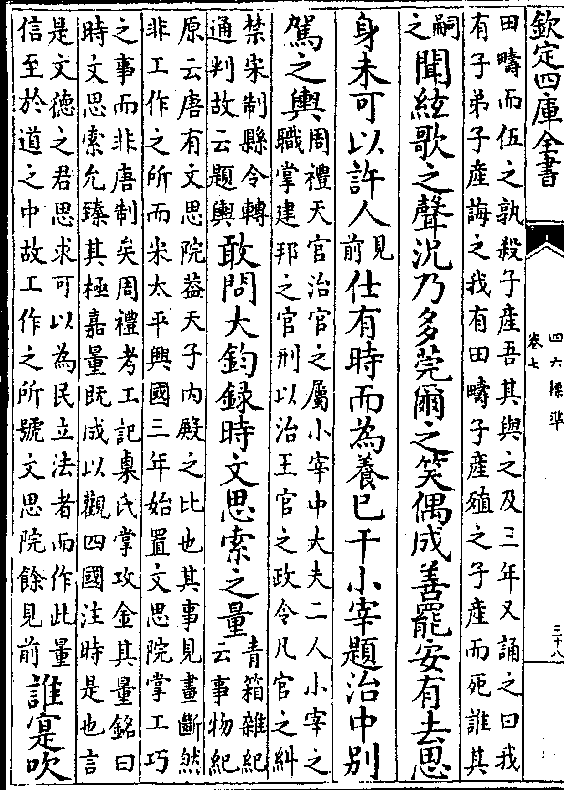 欽定四庫全書
四六標準
卷七
三十八
田疇而伍之孰殺子產吾其與之及三年又誦之曰我
有子弟子產誨之我有田疇子產殖之子產而死誰其
嗣之聞絃歌之聲況乃多莞爾之笑偶成善罷安有去思
身未可以許人見前仕有時而為養已干小宰題治中別
駕之輿周禮天官治官之屬小宰中大夫二人小宰之
職掌建邦之官刑以治王宮之政令凡宮之糾
禁宋制縣令轉
通判故云題輿敢問大鈞録時文思索之量青箱雜紀
云事物紀
原云唐有文思院葢天子內殿之比也其事見畫斷然
非工作之所而宋太平興國三年始置文思院掌工巧
之事而非唐制矣周禮考工記㮚氏掌攻金其量銘曰
時文思索允臻其極嘉量既成以觀四國注時是也言
是文德之君思求可以為民立法者而作此量
信至於道之中故工作之所號文思院餘見前誰寔吹